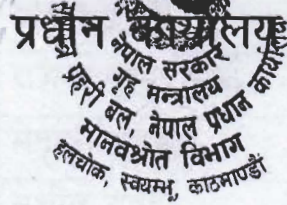 प्रधान कार्यालय
नेपाल सरकार
गृह मन्त्रालय
प्रहरी बल, नेपाल प्रधान कार्यालय
मानवश्रोत विभाग
हलचोक, स्वयम्भू, काठमाण्डौं